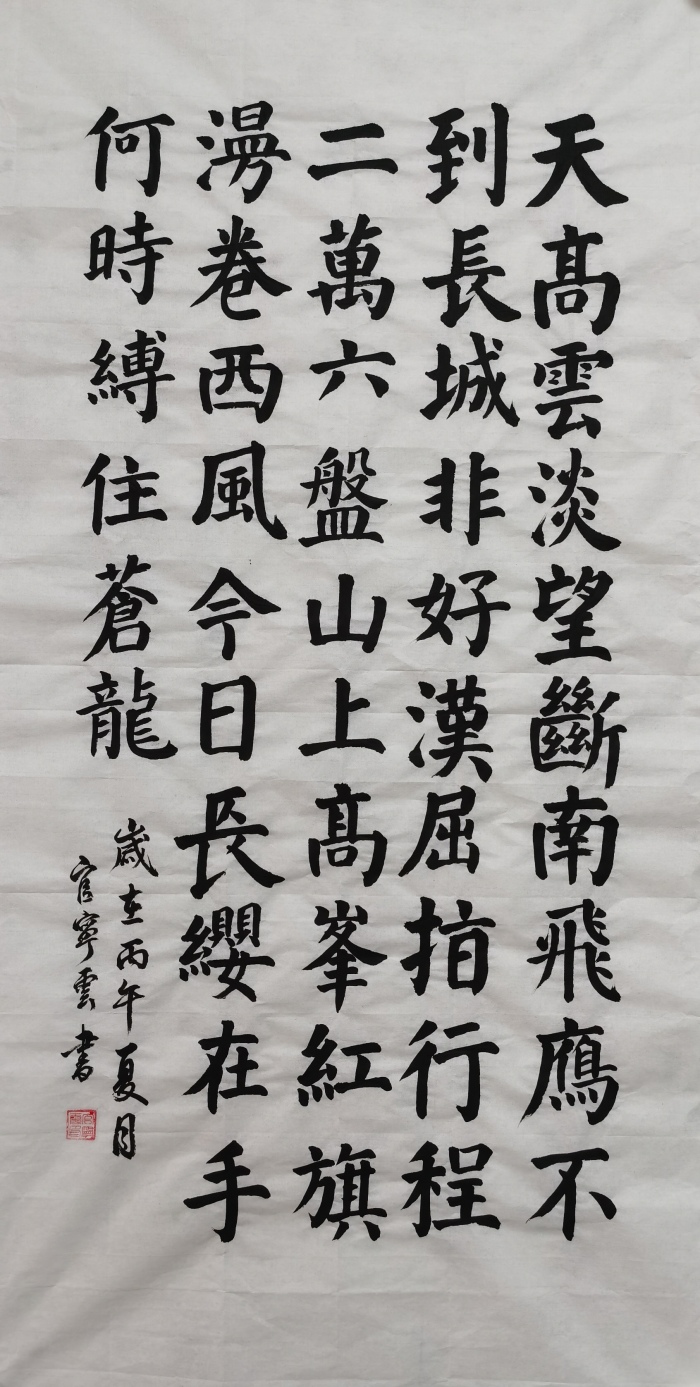 天髙雲淡望斷南飛鴈不
到長城非好漢屈指行程
二萬六盤山上髙峯紅旗
漫卷西風今日長纓在手
何時縛住蒼龍
歲在丙午夏月
官寧雲書